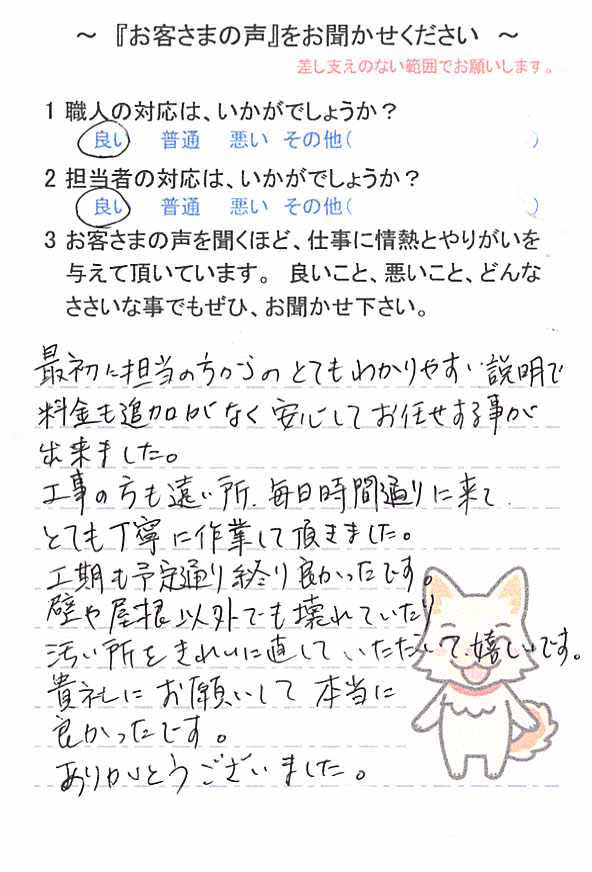 ～ 『お客さまの声』をお聞かせください ～
差し支えのない範囲でお願いします。
1 職人の対応は、いかがでしょうか？
良い 普通 悪い その他( )
2 担当者の対応は、いかがでしょうか？
良い 普通 悪い その他( )
3 お客さまの声を聞くほど、仕事に情熱とやりがいを
与えて頂いています。 良いこと、悪いこと、どんな
ささいな事でもぜひ、お聞かせ下さい。
最初に担当の方からのとてもわかりやすい説明で
料金も追加がなく安心してお任せする事が
出来ました。
工事の方も遠い所、毎日時間通りに来て、
とても丁寧に作業して頂きました。
工期も予定通り終り良かったです。
壁や屋根以外でも壊れていたり
汚い所をきれいに直していただいて、嬉しいです。
貴礼にお願いして本当に
良かったです。
ありがとうございました。